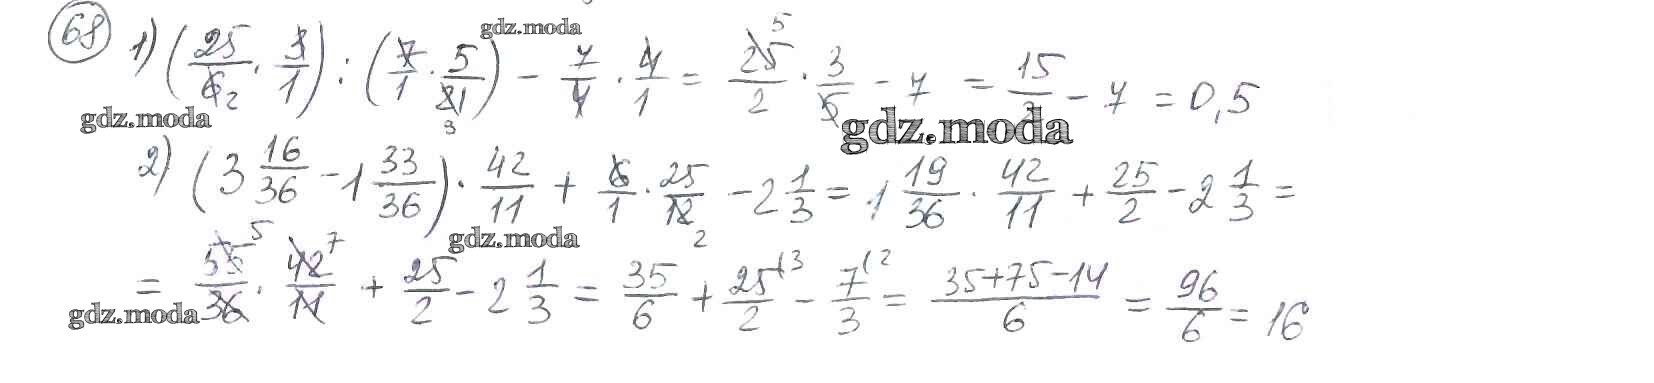 gdz.moda
68 1) (25/6 2 · 3/1) : (7/1 · 5/21 3) - 7/4 · 4/1 = 25 5/2 · 3/5 - 7 = 15/2 - 7 = 0,5
gdz.moda gdz.moda
2) (3 16/36 - 1 33/36) · 42/11 + 6/1 · 25/12 2 - 2 1/3 = 1 19/36 · 42/11 + 25/2 - 2 1/3 =
gdz.moda
= 55 5/36 · 42 7/11 + 25/2 - 2 1/3 = 35/6 + 25 (3/2 - 7 (2/3 = 35+75-14/6 = 96/6 = 16
gdz.moda